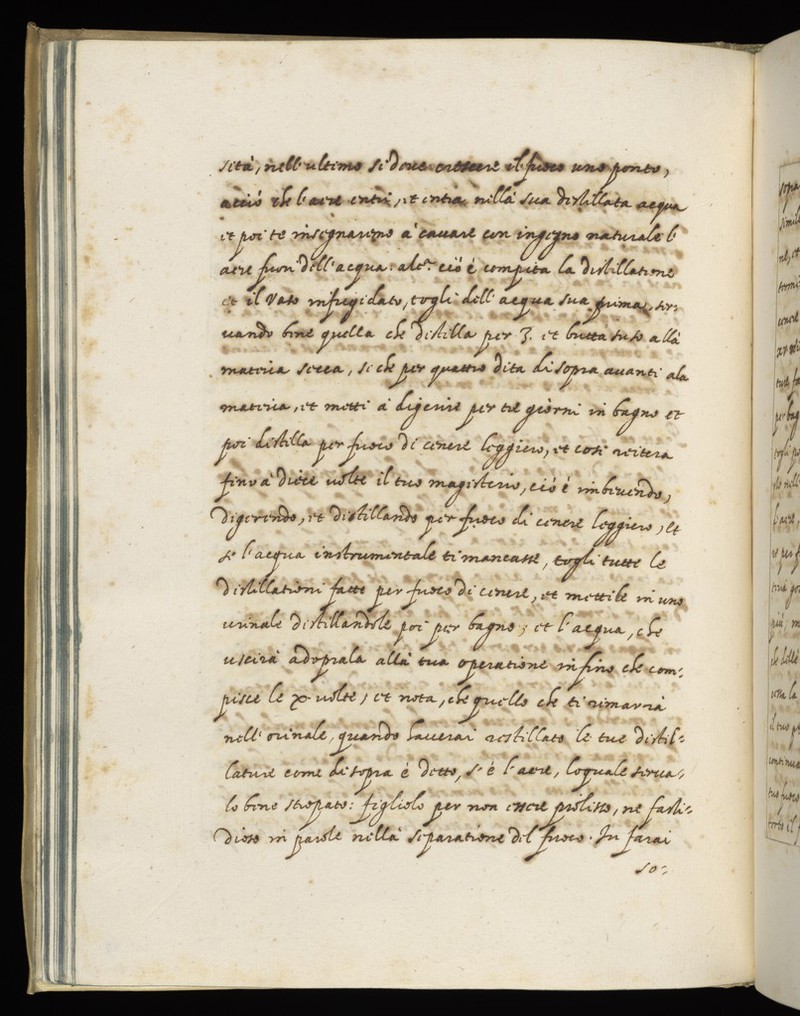 sità, nell'ultimo si doue crescere il fuoco uno ponto,
acciò che l'aere entri, et entra nella sua distillata acqua
et poi te insegnaremo a cauare con ingegno naturale l'
aere fuori dell'acqua: ciò è compita la distillatione
et il Vaso infrigidato, togli dell'acqua sua prima, ser:
uando bene quella che distilla per 3. et butta suso alla
materia secca, si che per quattro dita di sopra auanti ala
materia, et metti a digerire per tre giorni in bagno et
poi distilla per fuoco di cenere leggiero, et così reitera
fino a diece uolte il tuo magisterio, ciò è imbeuendo,
digerendo, et distillando per fuoco di cenere leggiero, et
se l'acqua instrumentale ti mancasse, togli tutte le
distillationi fatte per fuoco di cenere, et mettile in uno
urinale distillandole poi per bagno; et l'acqua, che
uscirà adoprala alla tua operatione infino che com:
pisce le x uolte, et nota, che quello che ti rimarrà
nell'orinale, quando hauerai restillato le tue distil:
lature come di sopra è detto, si è l'aere, loquale serua:
lo bene stopato: figliolo per non essere prolisso, ne fasti:
dioso in parole nella separatione del fuoco. Tu farai
so: